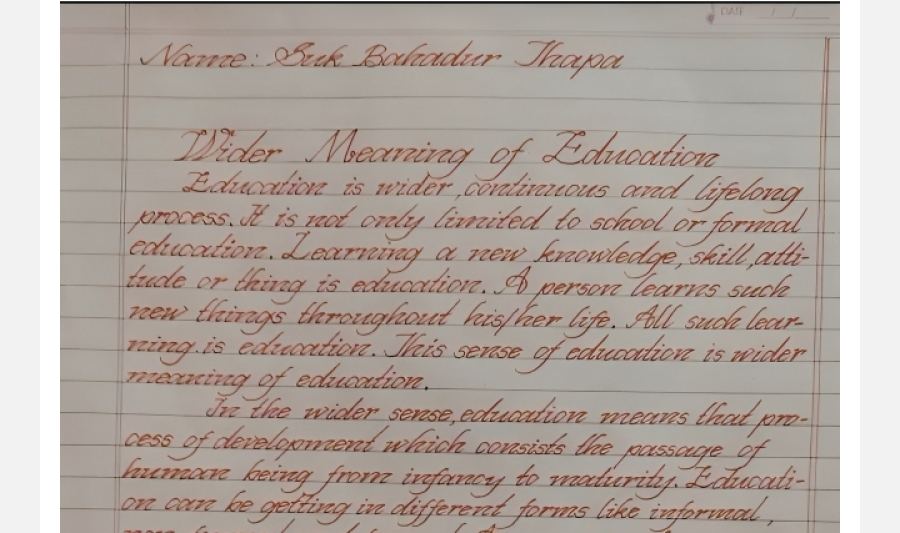 DATE / /
Name: Suk Bahadur Thapa
Wider Meaning of Education
Education is wider, continuous and lifelong
process. It is not only limited to school or formal
education. Learning a new knowledge, skill, atti-
tude or thing is education. A person learns such
new things throughout his/her life. All such lear-
ning is education. This sense of education is wider
meaning of education.
In the wider sense, education means that pro-
cess of development which consists the passage of
human being from infancy to maturity. Educati-
on can be getting in different forms like informal,